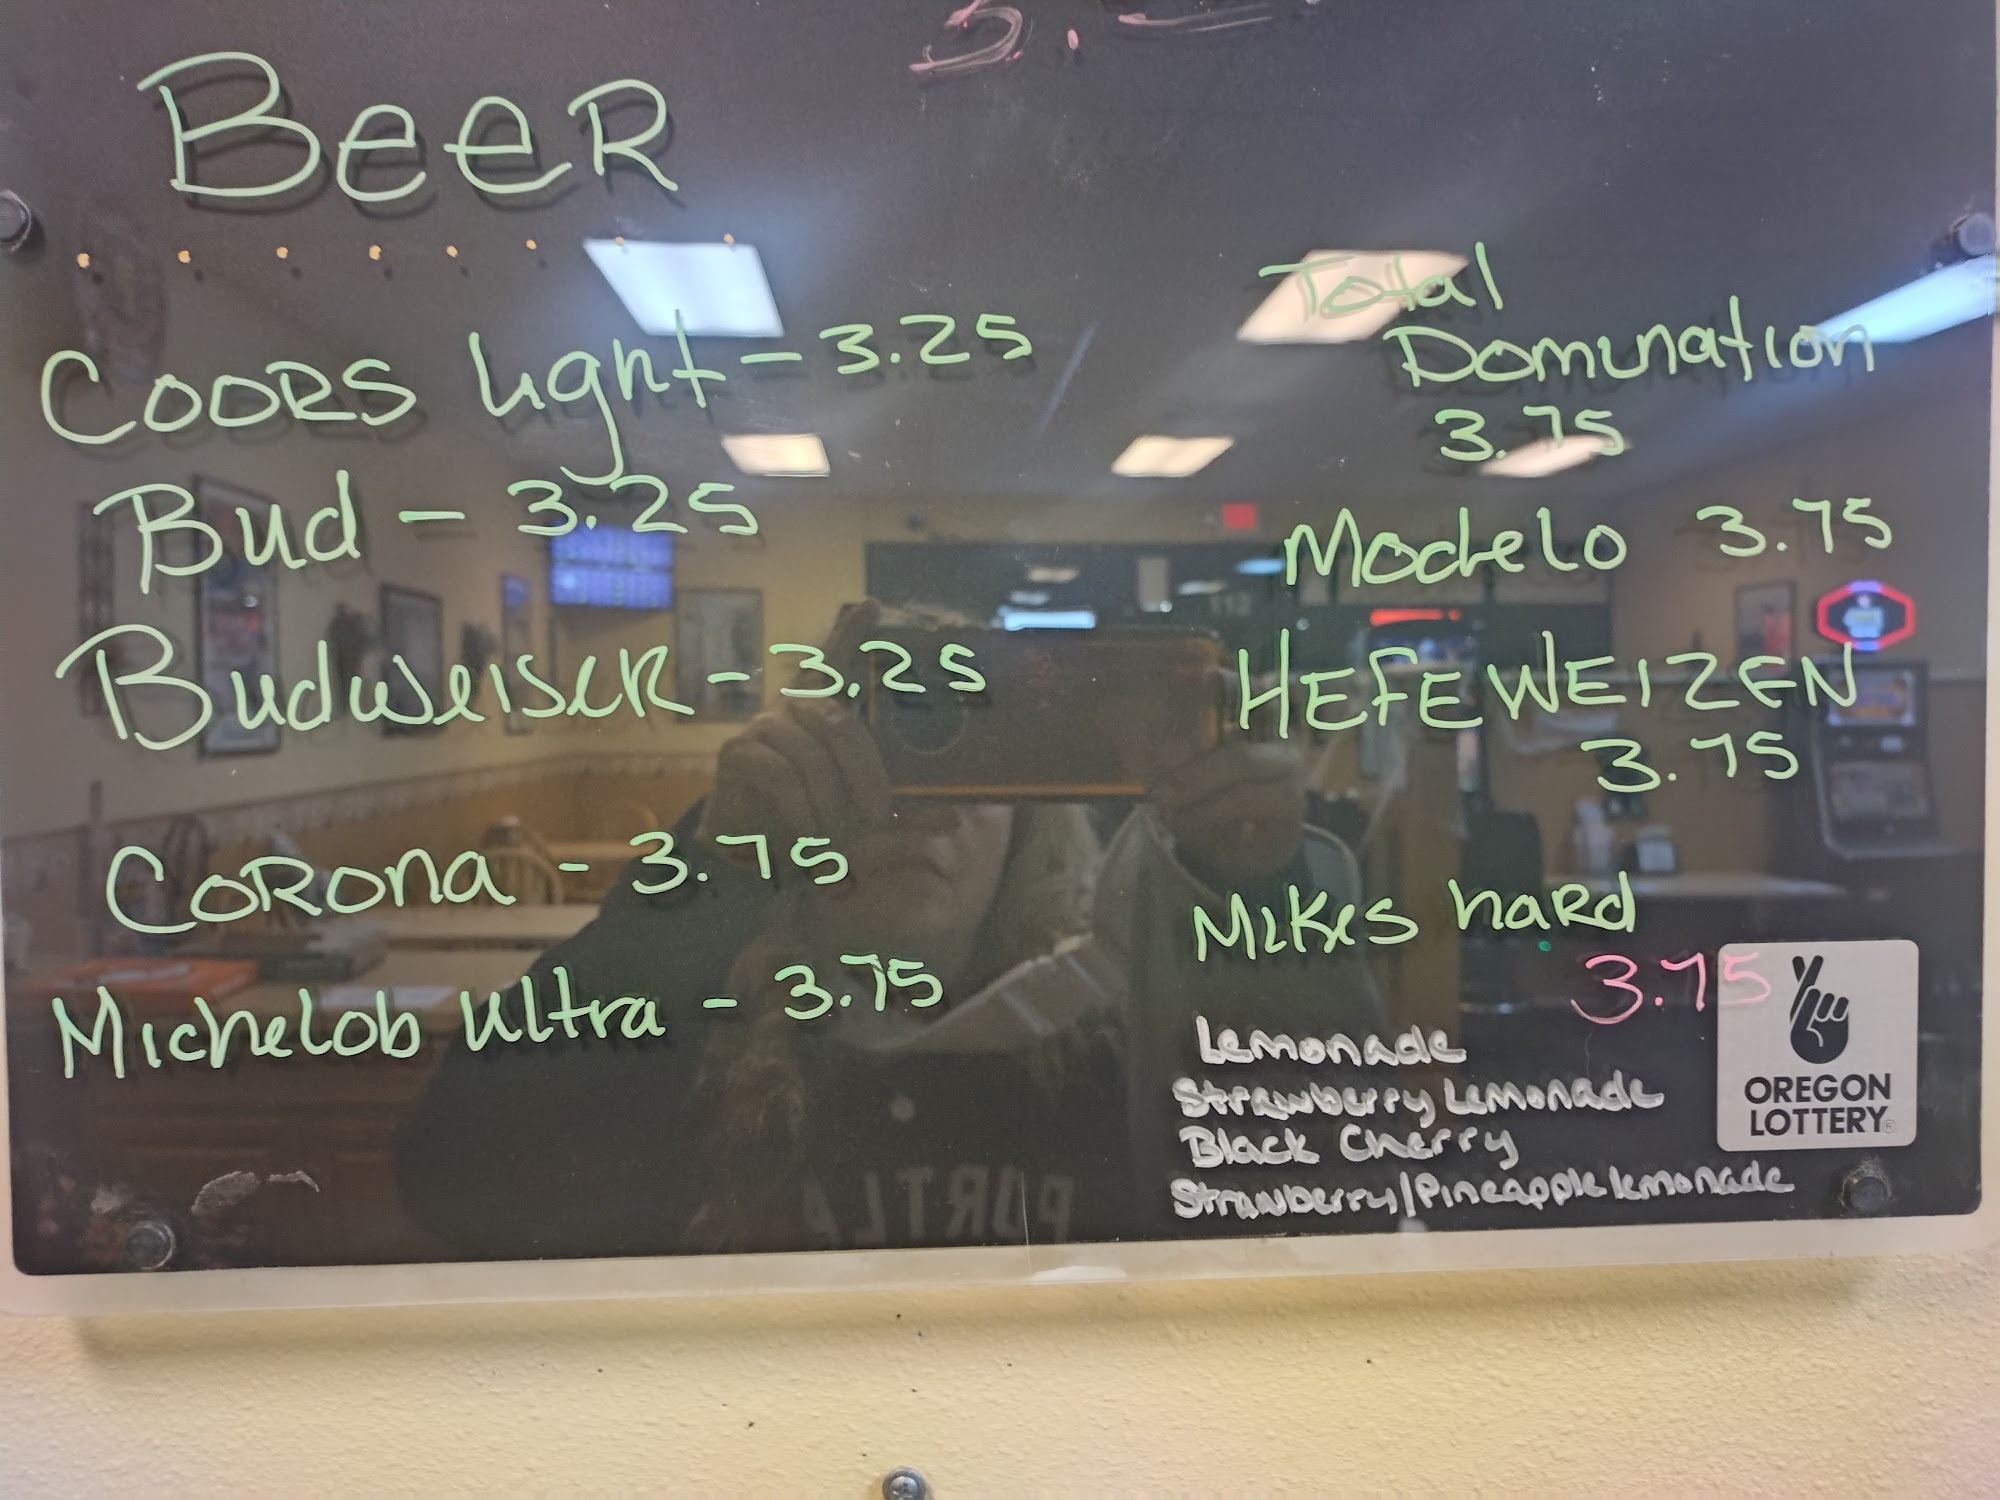 BeeR
Coors Light - 3.25
Bud - 3.25
Budweiser - 3.25
Corona - 3.75
Michelob Ultra - 3.75
Total
Domination
3.75
Modelo 3.75
HEFEWEIZEN
3.75
Mikes hard
3.75
Lemonade
Strawberry Lemonade
Black Cherry
Strawberry/Pineapple lemonade
OREGON
LOTTERY®